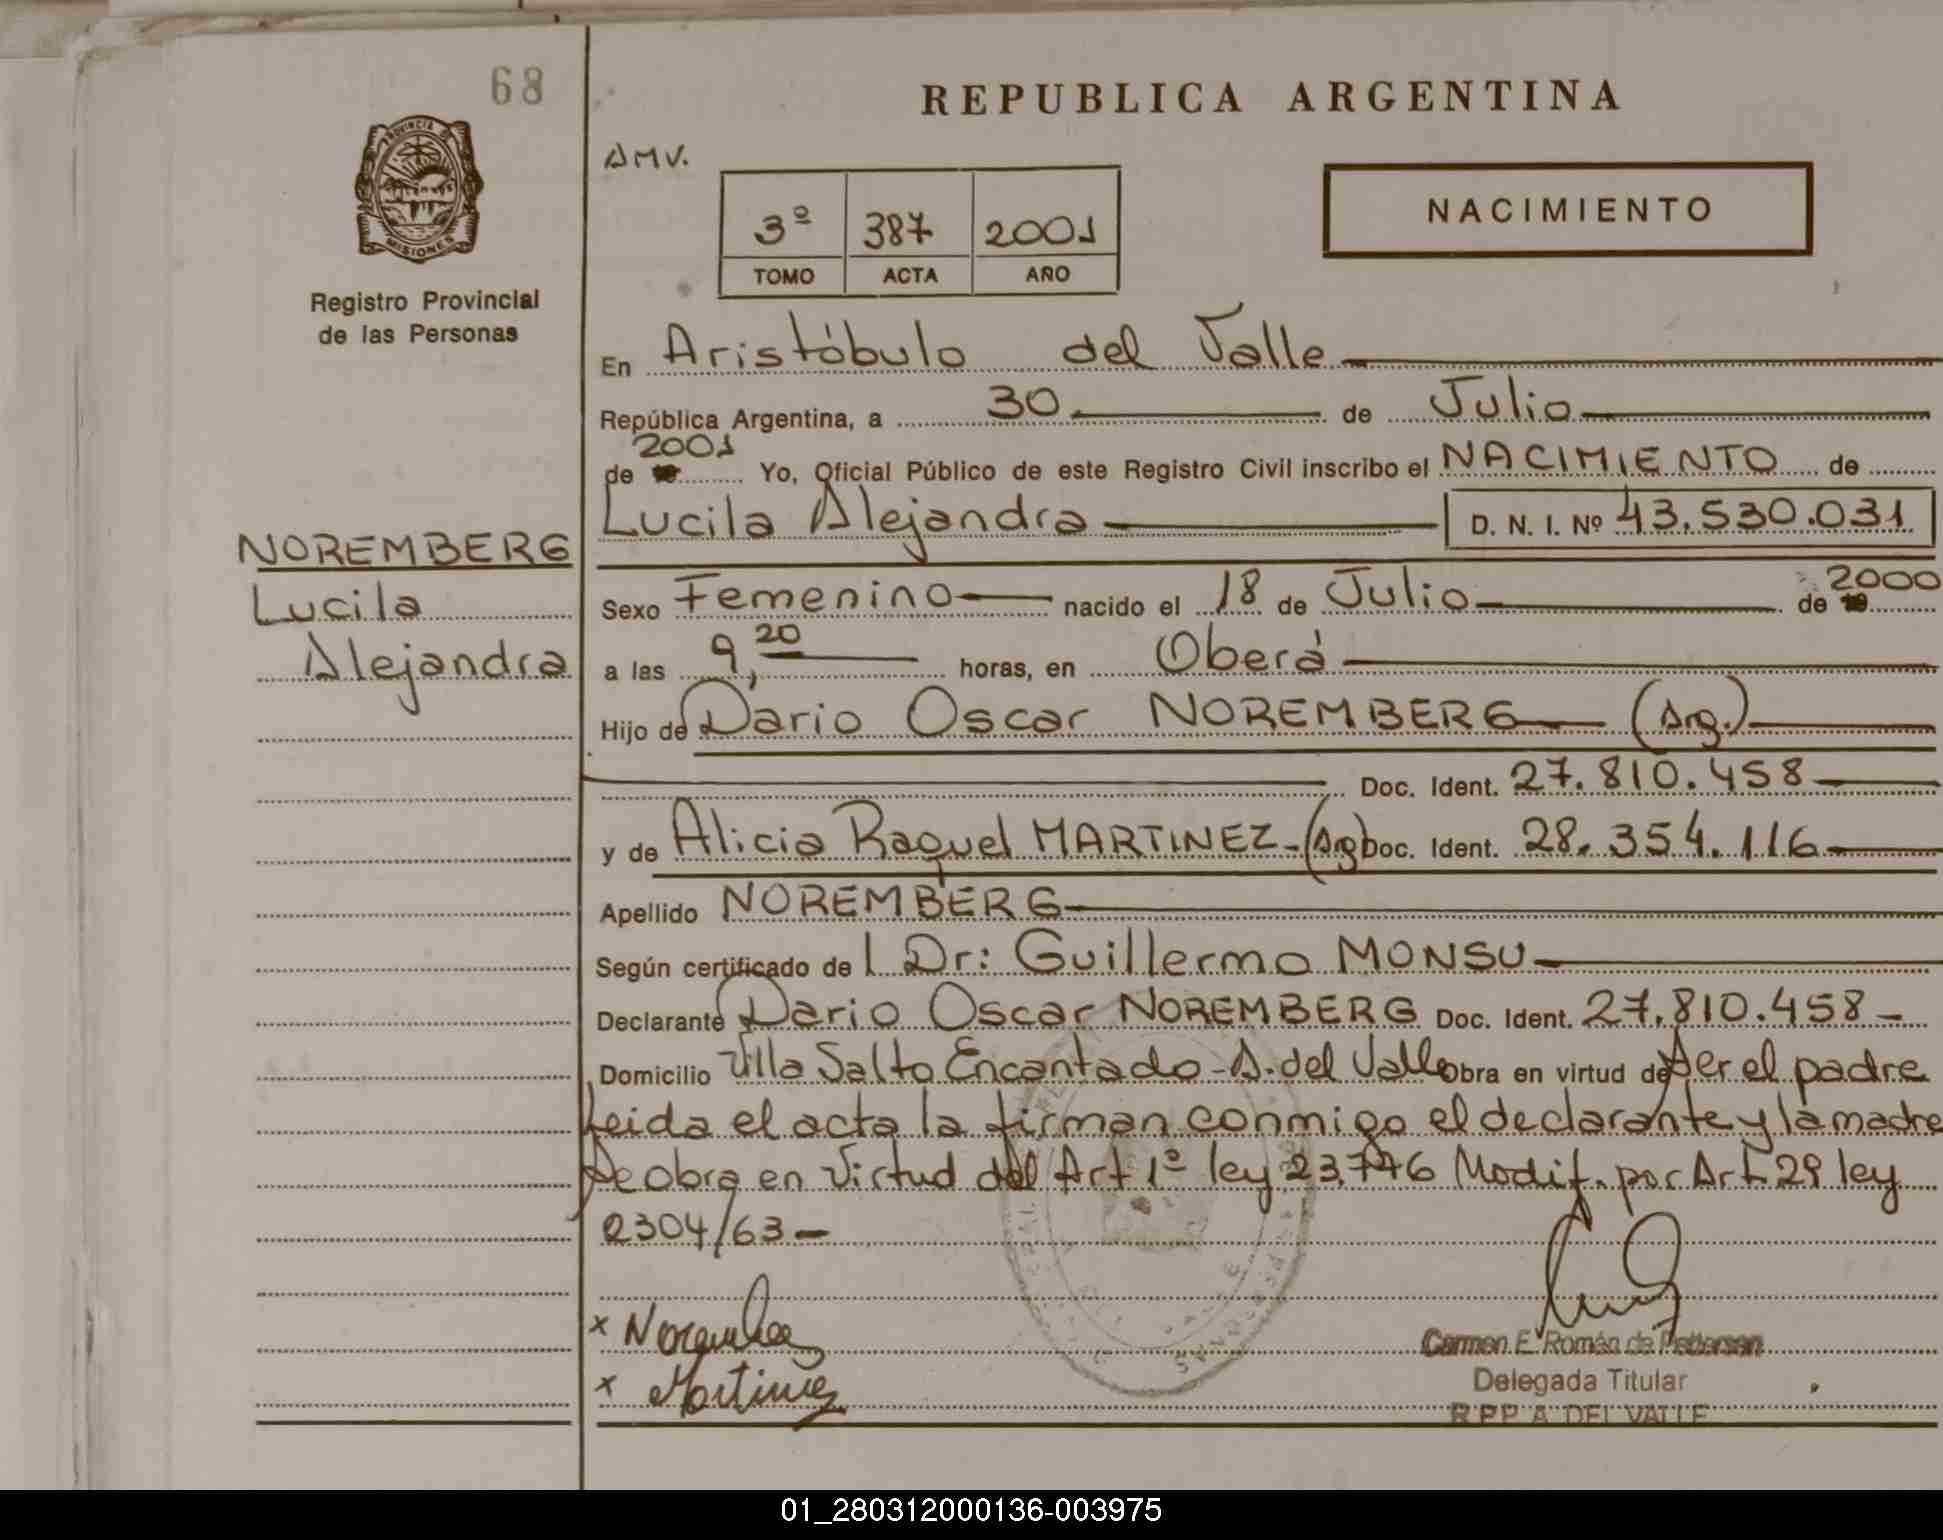 68
REPUBLICA ARGENTINA
PROVINCIA DE
MISIONES
Registro Provincial
de las Personas
AMV.
3º 387 2001
TOMO ACTA AÑO
NACIMIENTO
En Aristóbulo del Valle
República Argentina, a 30 de Julio
de 2001 Yo, Oficial Público de este Registro Civil inscribo el NACIMIENTO de
Lucila Alejandra D. N. I. Nº 43.530.031
NOREMBERG
Lucila
Alejandra
Sexo Femenino nacido el 18 de Julio de 2000
a las 9,20 horas, en Oberá
Hijo de Dario Oscar NOREMBERG (Arg.)
Doc. Ident. 27.810.458
y de Alicia Raquel MARTINEZ - (Arg) Doc. Ident. 28.354.116
Apellido NOREMBERG
Según certificado de l Dr: Guillermo MONSU
Declarante Dario Oscar NOREMBERG Doc. Ident. 27.810.458
Domicilio Villa Salto Encantado - A. del Valle Obra en virtud de ser el padre
Leida el acta la firman conmigo el declarante y la madre
Se obra en virtud del Art 1º ley 23.746 Modif. por Art 29 ley
2304/63
x Noremberg
x Martinez
Carmen E. Román de Pettersen
Delegada Titular
R.P.P. A. DEL VALLE
01_280312000136-003975